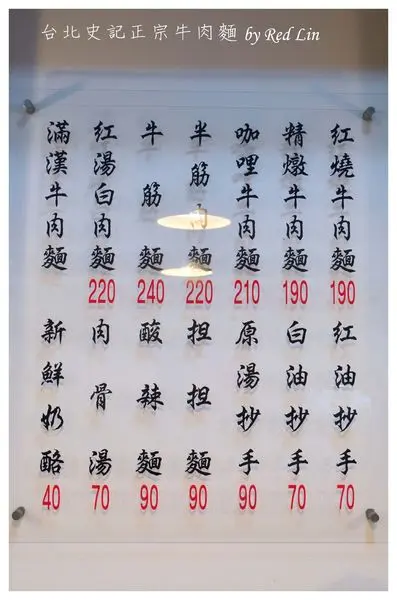 台北史記正宗牛肉麵 by Red Lin
紅燒牛肉麵 190
精燉牛肉麵 190
咖哩牛肉麵 210
半筋肉麵 220
牛筋麵 240
紅湯白肉麵 220
滿漢牛肉麵
紅油抄手 70
白油抄手 70
原湯抄手 90
担担麵 90
酸辣麵 90
肉骨湯 70
新鮮奶酪 40